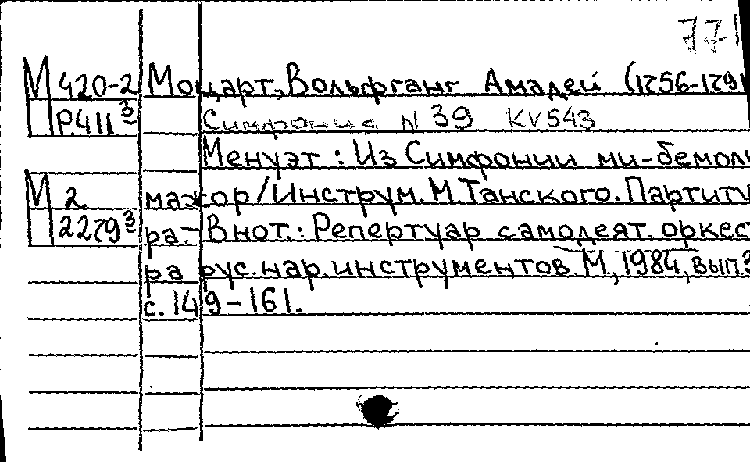 771
М 420-2 Моцарт, Вольфганг Амадей (1756-1791
Р411 3/2 Симфония N 39 KV543
Менуэт: Из Симфонии ми-бемоль
М 2 мажор/Инструм. М.Танского. Партиту
2279 3/2 ра.- В нот.: Репертуар самодеят. оркест
ра рус. нар. инструментов М., 1984, вып.3
с. 149-161.